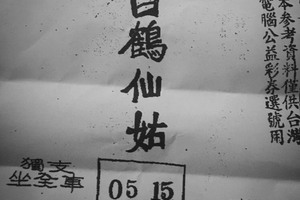 本參考資料僅供台灣
電腦公益彩券選號用
白鶴仙姑
獨支
坐全車
05 15